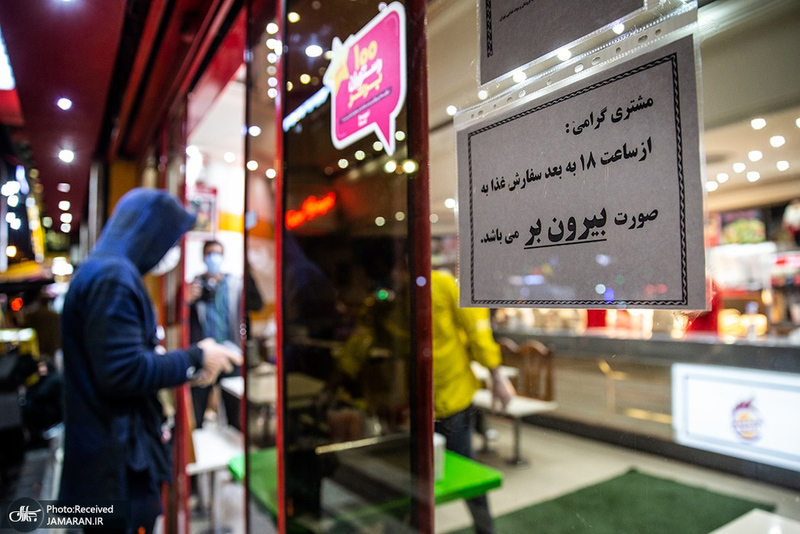 مشتری گرامی :
ازساعت ۱۸ به بعد سفارش غذا به
صورت بیرون بر می باشد.
۱۰۰
Photo:Received
JAMARAN.IR